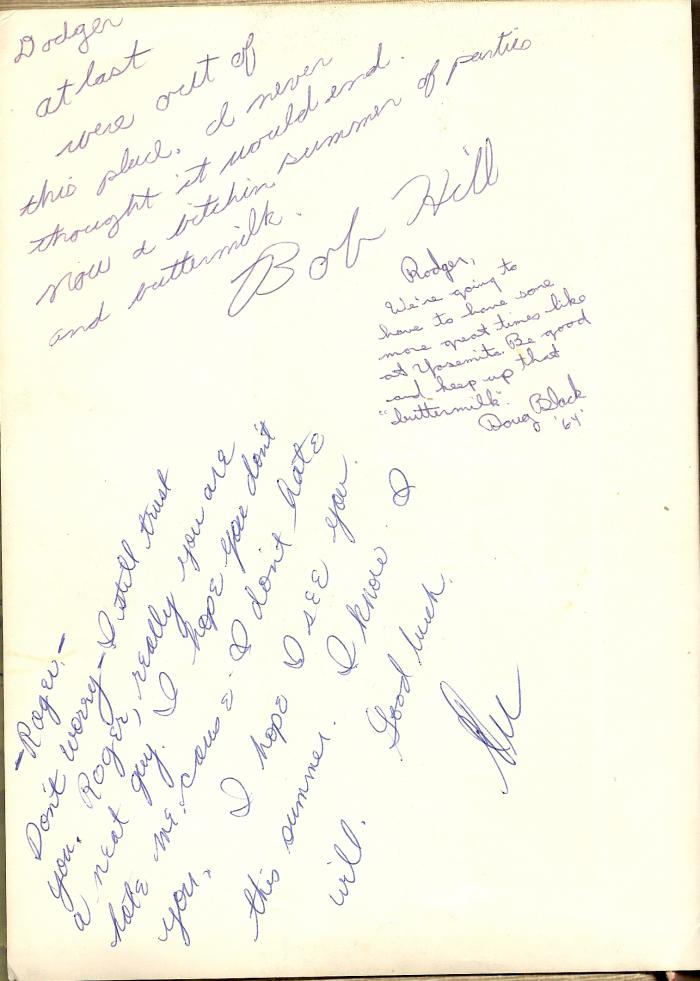 Dodger
at last
were out of
this place. I never
thought it would end.
Now a bitchin summer of parties
and buttermilk.
Bob Hill
Rodger,
We're going to
have to have some
more great times like
at Yosemite. Be good
and keep up that
"buttermilk".
Doug Black
'64'
-Roger-
Don't worry - I still trust
you. Roger, really you are
a neat guy. I hope you don't
hate me cause I don't hate
you. I hope I see you
this summer. I know I
will. Good luck.